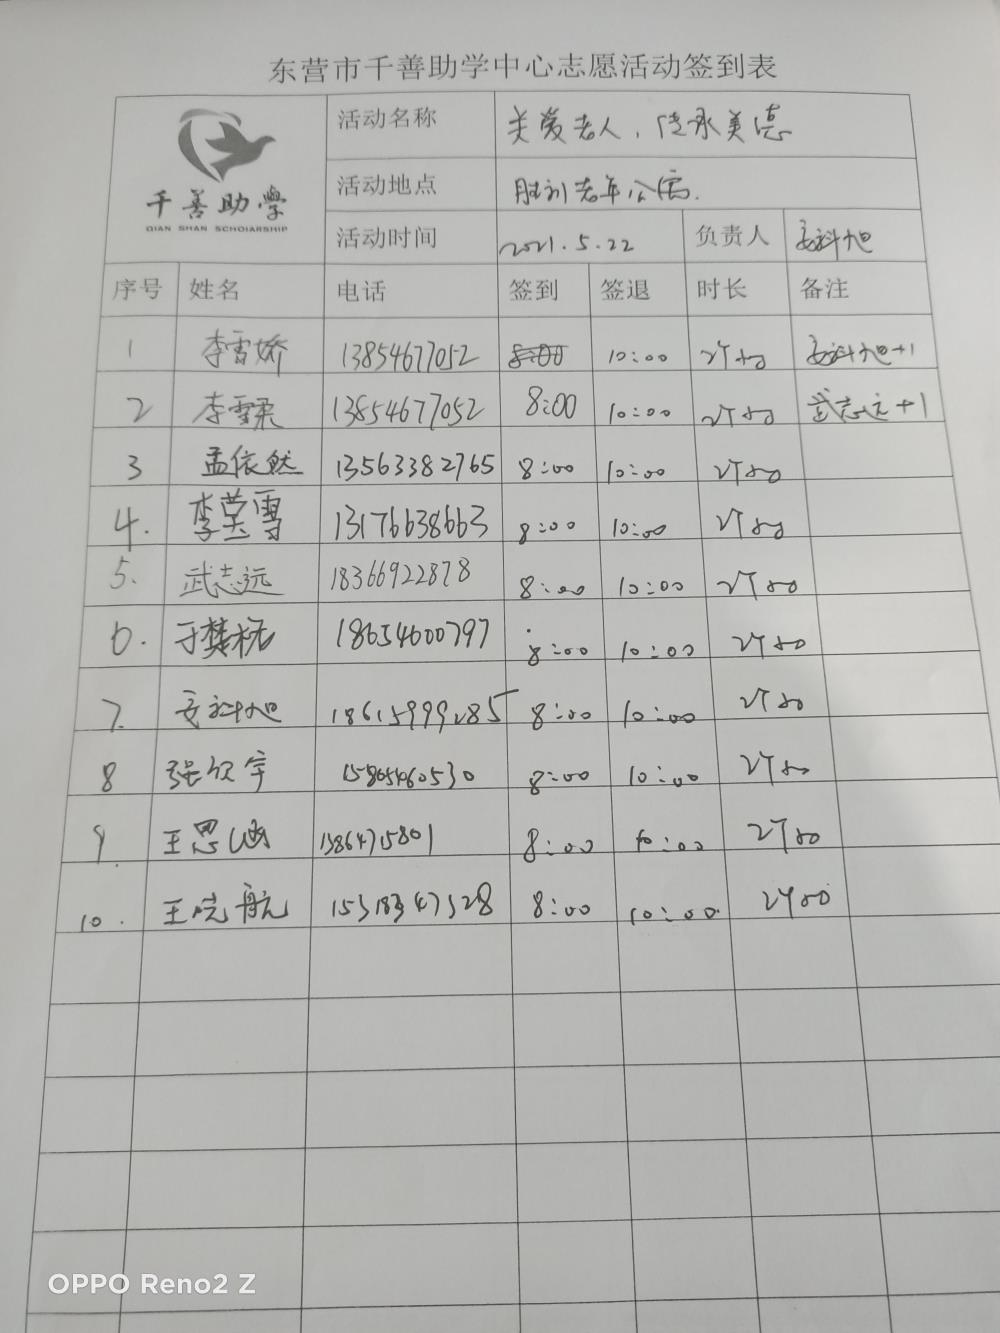 东营市千善助学中心志愿活动签到表
千善助學
QIAN SHAN SCHOLARSHIP
活动名称 关爱老人，传承美德
活动地点 胜利老年公寓.
活动时间 2021.5.22 负责人 安科旭
序号 姓名 电话 签到 签退 时长 备注
1 李雪娇 13854677052 8:00 10:00 2个小时 安科旭+1
2 李雪柔 13854677052 8:00 10:00 2个小时 武志远+1
3 孟依然 13563382765 8:00 10:00 2个小时
4. 李莹雪 13176638663 8:00 10:00 2个小时
5. 武志远 18366922878 8:00 10:00 2个小时
6. 于樊 18654600797 8:00 10:00 2个小时
7. 安科旭 18615999285 8:00 10:00 2个小时
8 张 宇 15865460530 8:00 10:00 2个小时
9. 王思涵 8:00 10:00 2个小时
10. 王 航 8:00 10:00 2个小时
OPPO Reno2 Z